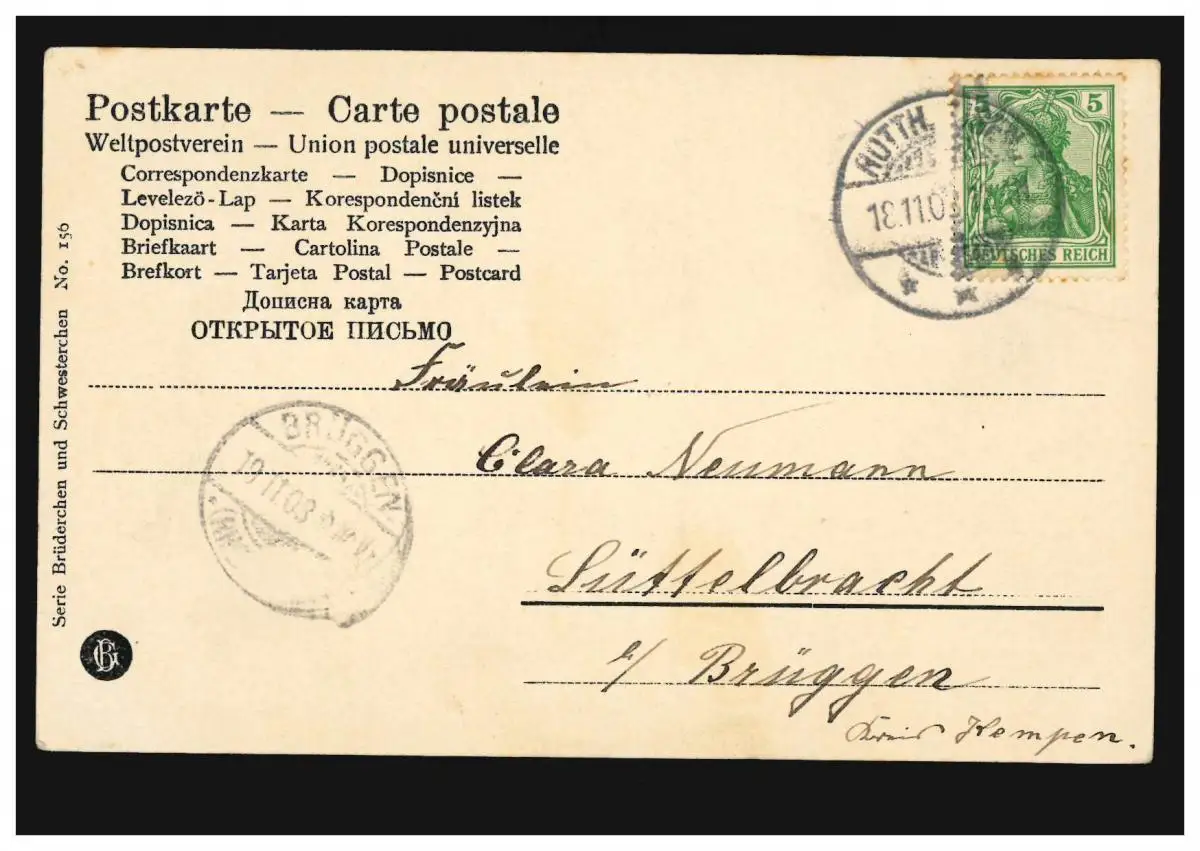 Postkarte — Carte postale
Weltpostverein — Union postale universelle
Correspondenzkarte — Dopisnice —
Levelező-Lap — Korespondenční listek
Dopisnica — Karta Korespondenzyjna
Briefkaart — Cartolina Postale —
Brefkort — Tarjeta Postal — Postcard
Дописна карта
ОТКРЫТОЕ ПИСЬМО
5 5
DEUTSCHES REICH
18.11.03
Fräulein
Clara Neumann
Lüttelbracht
b/ Brüggen
Kreis Kempen.
BRÜGGEN
19.11.03
Serie Brüderchen und Schwesterchen No. 156